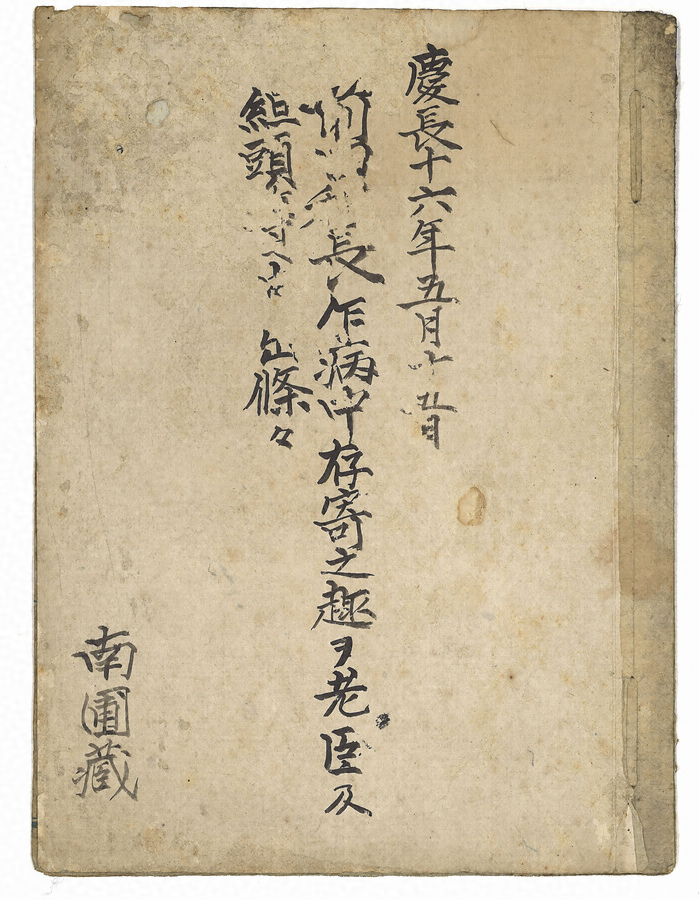 慶長十六年五月十五日
長乍病中存寄之趣ヲ老臣及
組頭 條々
南圃藏